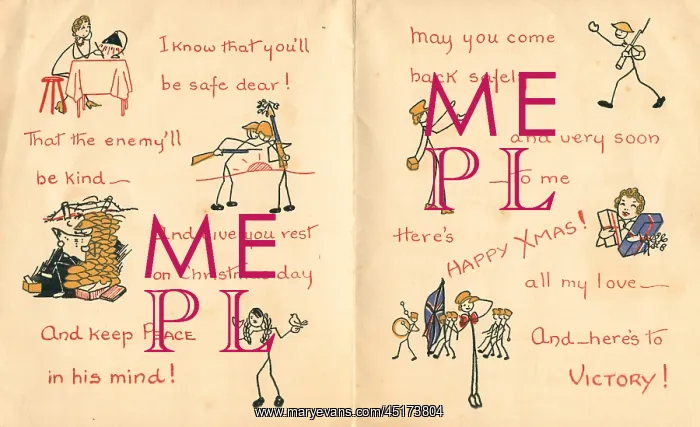 I know that you'll
be safe dear!
That the enemy'll
be kind—
And give you rest
on Christmas day
And keep PEACE
in his mind!
May you come
back safely
and very soon
—to me
Here's
HAPPY XMAS!
all my love—
And—here's to
VICTORY!
ME
PL
ME
PL
www.maryevans.com/45173804